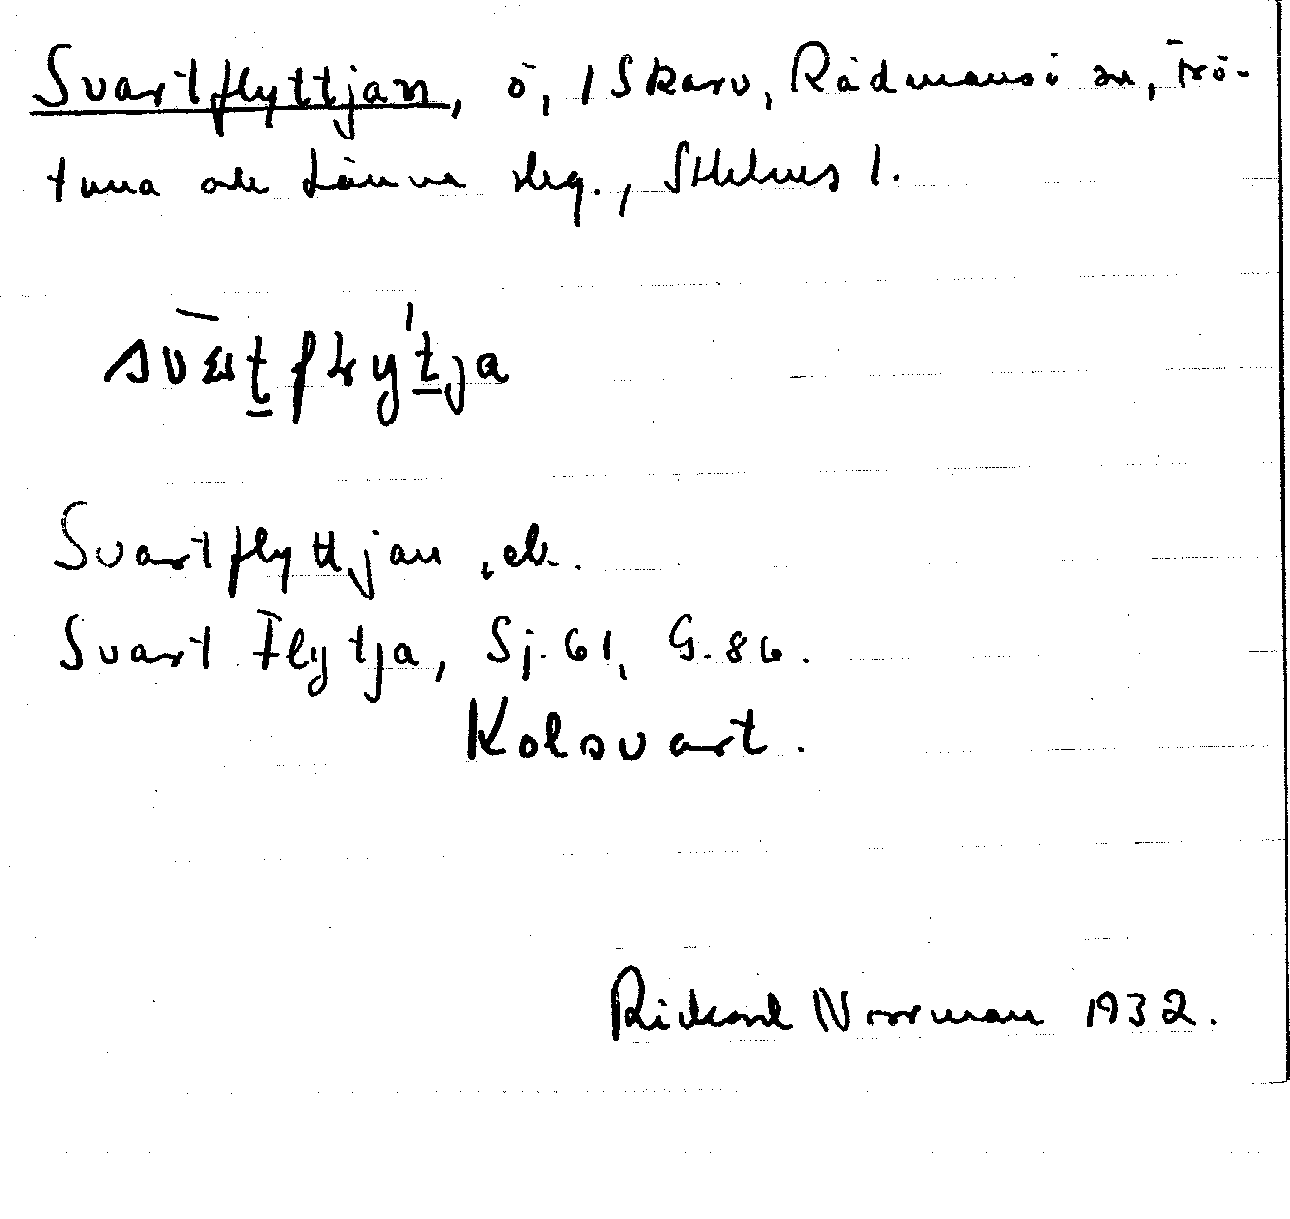 Svartflyttjan, ö, I Skarv, Rådmansö sn, Frö-
tuna och Länna skg., Sthlms l.
svart̲fly't̲ja
Svartflyttjan, ek.
Svart Flytja, Sj. 61, G. 86.
Kolsvart.
Rickard Norrman 1932.